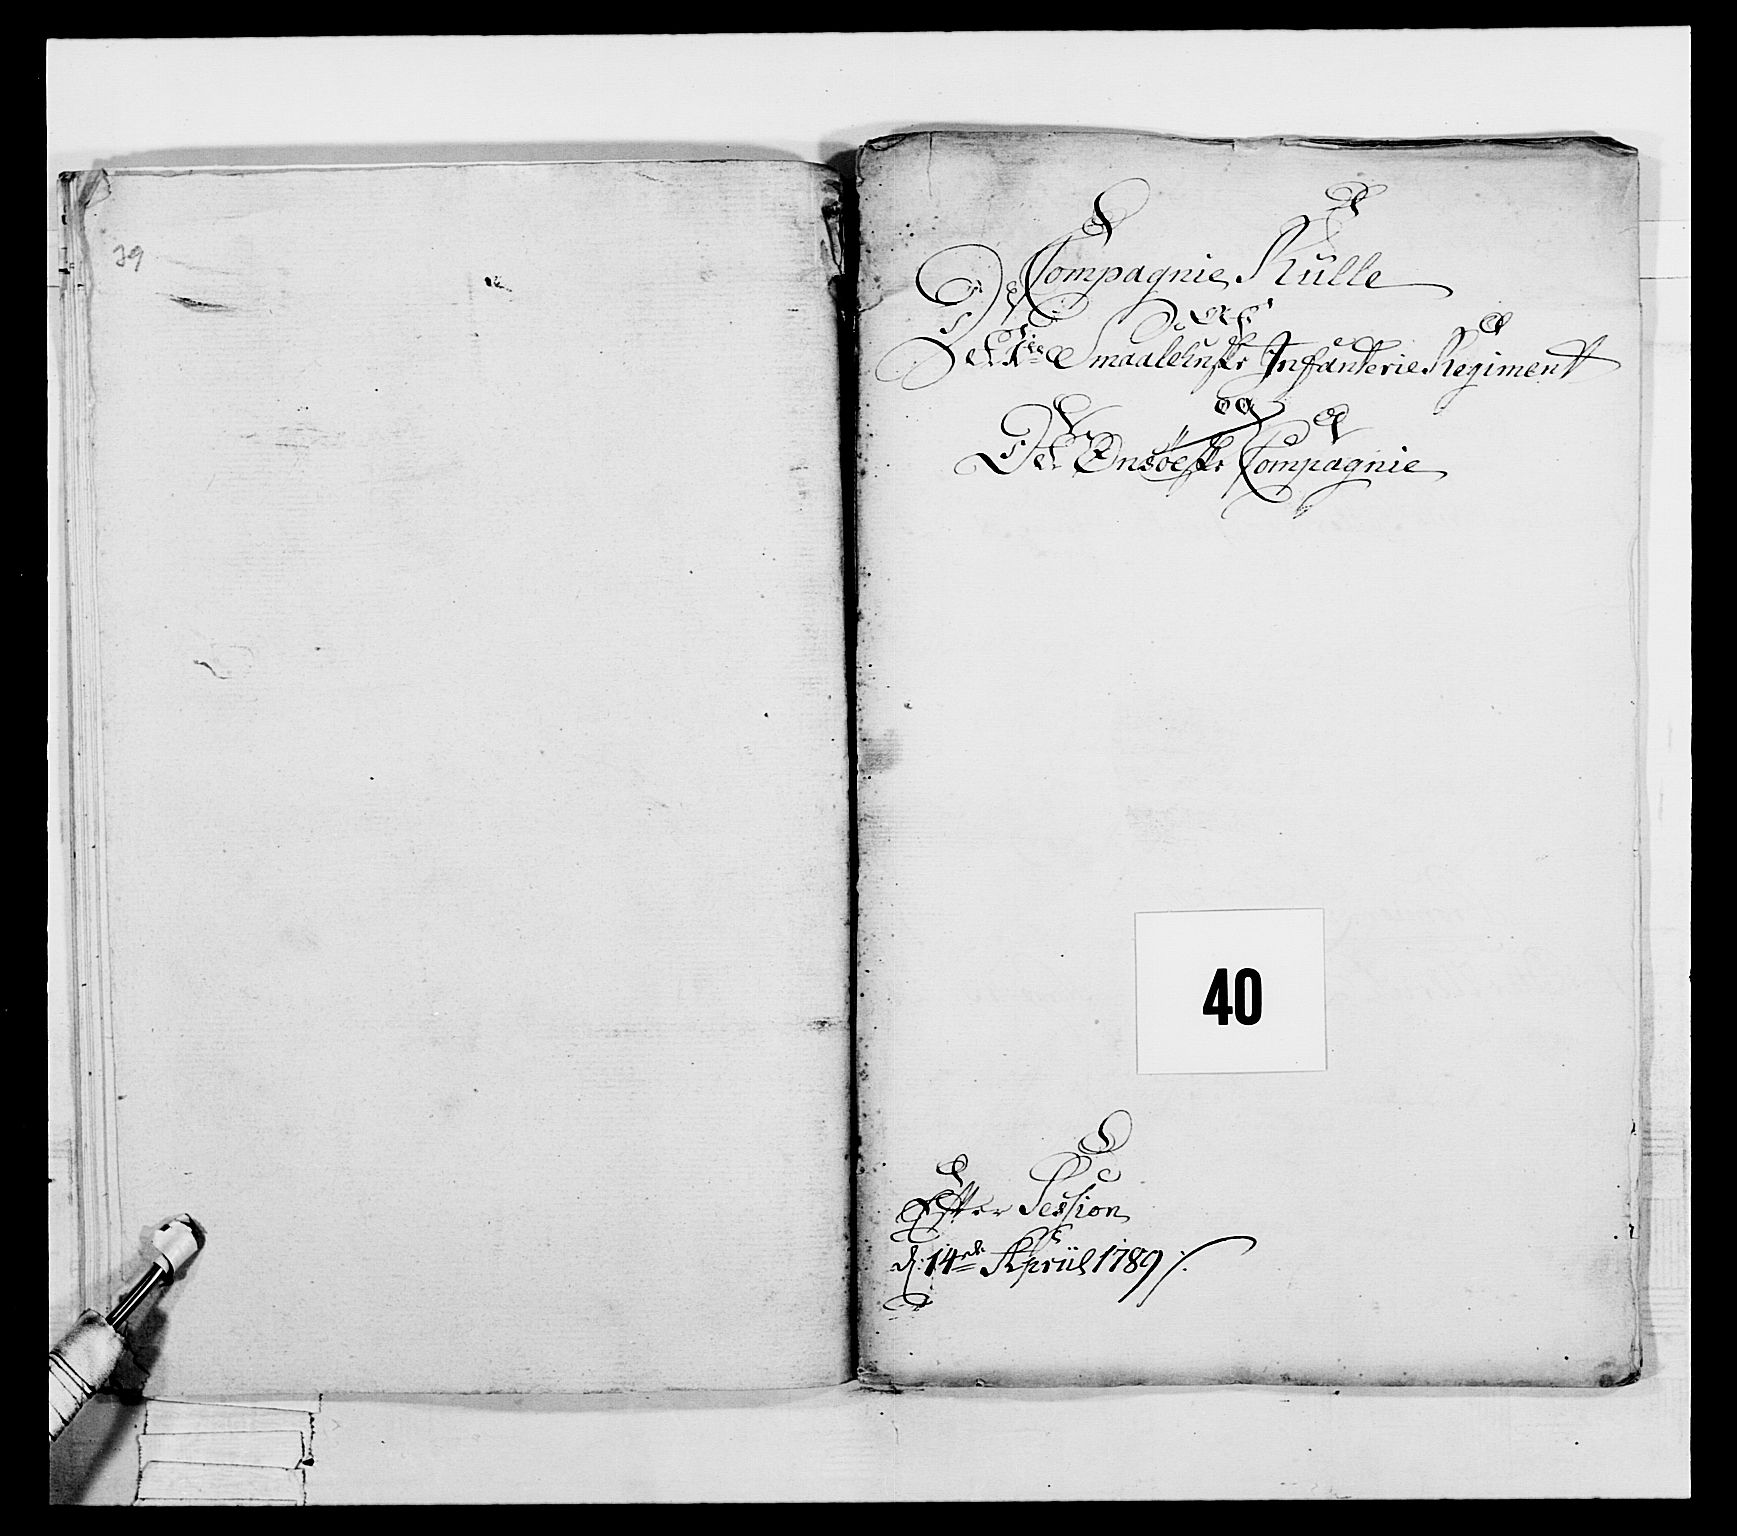 39
Compagnie Rulle
Ved
Det 1te Smaalehnske Infanterie Regiment
og
Det Onsöeske Compagnie
40
Efter Session
d: 14de Apriil 1789 /.